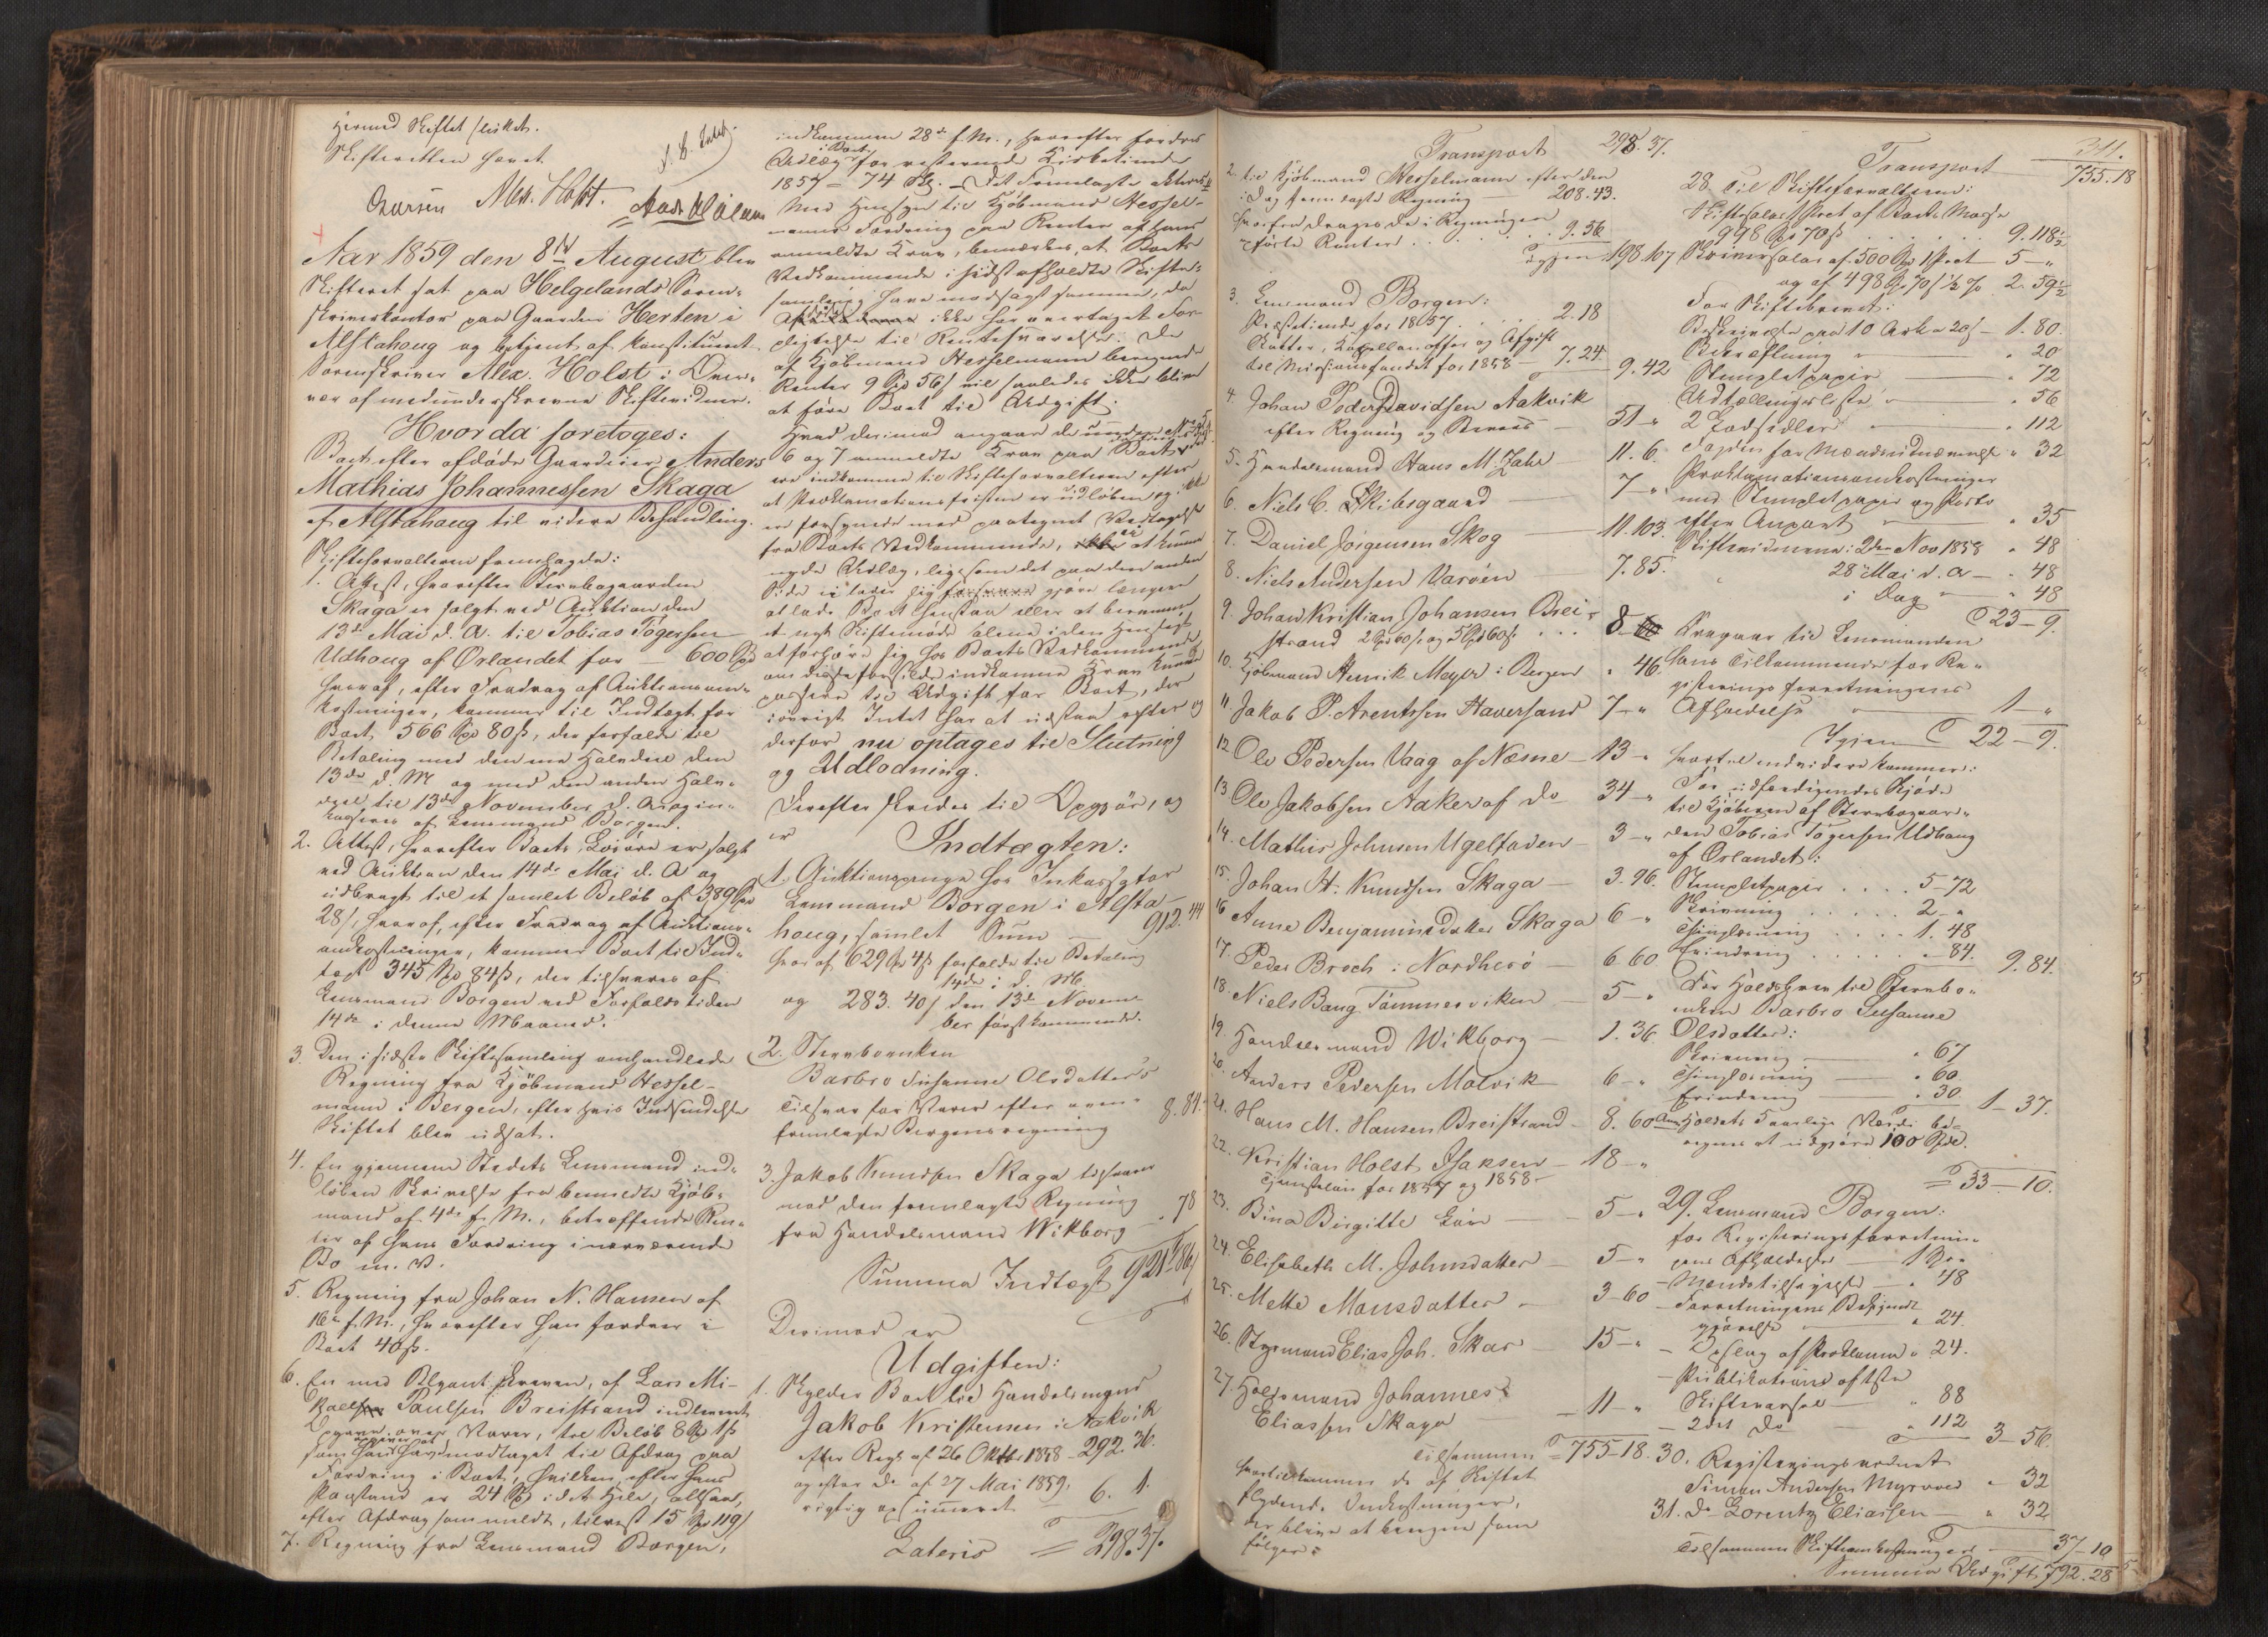 hermed Skiftet sluttet.
Skifteretten hævet.
Alex. Holst.
Aar 1859 den 8de August blev
Skifteret sat paa Helgelands Soren-
skriverkontor paa Gaarden Herten i
Alstahoug og betjent af konstitueret
Sorenskriver Alex. Holst i Over-
vær af medunderskrevne Skiftevidner.
Hvorda foretoges:
Boet efter afdøde Gaardeier Anders
Mathias Johannessen Skaga
af Alstahoug til videre Behandling.
Skifteforvalteren fremlagde:
1. Attest, hvorefter Stervbogaarden
Skaga er solgt ved Auktion den
13de Mai d. A. til Tobias Tøgersen
Udhoug af Ørlandet for — 600 Spd
hvoraf, efter Fradrag af Auktionsom-
kostninger, kommer til Indtægt for
Boet 566 Spd 80 ß, der forfalde til
Betaling med den ene Halvdeel den
13de d. M. og med den anden Halv-
deel til 13de November d. A. og in-
kasseres af Lensmand Borgen.
2. Attest, hvorefter Boets Løsøre er solgt
ved Auktion den 14de Mai d. A. og
udbragt til et samlet Beløb af 389 Spd
28 ß, hvoraf, efter Fradrag af Auktions-
omkostninger, kommer Boet til Ind-
tægt 345 Spd 84 ß, der tilsvares af
Lensmand Borgen ved Forfaldstiden
14de i denne Maaned.
3. Den i sidste Skiftesamling omhandlede
Regning fra Kjøbmand Hessel-
mann i Bergen, efter hvis Indsendelse
Skiftet blev udsat.
4. En gjennem Stedets Lensmand ind-
løben Skrivelse fra bemeldte Kjøb-
mand af 4de f. M., betræffende Ren-
ter af hans Fordring i nærværende
Bo m. V.
5. Regning fra Johan N. Hansen af
16de f. M., hvorefter han fordrer i
Boet 40 ß.
6. En med Blyant skreven, af Lars Mi-
kaelsen Paulsen Breistrand indleveret
Opgave over Varer, til Beløb 8 Spd 1 ß
som han opgiver at have modtaget til Afdrag paa
Fordring i Boet, hvilken, efter hans
Paastand er 24 Spd i det Hele, altsaa,
efter Afdrag som meldt, tilrest 15 Spd 119 ß
7. Regning fra Lensmand Borgen,
indkommen 28de f. M., hvorefter fordres
Udlæg i Boet for resterende Kirketiende
1857 = 74 Sk. — Det Fremlagte aktere[s]
Med Hensyn til Kjøbmand Hessel-
manns Fordring paa Renter af hans
anmeldte Krav, bemærkes, at Boets
Vedkommende i sidst afholdte Skifte-
samling have modsagt samme, da
ikke har overtaget For-
pligtelse til Rentesvarelse. De
af Kjøbmand Hesselmann beregnede
Renter 9 Spd 56 ß vil saaledes ikke blive
at føre Boet til Udgift.
Hvad derimod angaar de under No 5,
6 og 7 anmeldte Krav paa Boet,
ere indkomne til Skifteforvalteren efter
at Proklamationsfristen er udløben og ikke
ere forsynede med paategnet Vedtagelse
fra Boets Vedkommende, ei at kunne
nyde Udlæg, ligesom det paa den anden
Side ei lader sig gjøre længere
at lade Boet henstaa eller at beramme
et nyt Skiftemøde alene i den Hensigt
at forhøre sig hos Boets Vedkommende
om disse forsilde indkomne Krav kunde
passere til Udgift for Boet, der
iøvrigt Intet har at udstaa efter og
derfor nu optages til Slutning
og Udlodning.
Derefter skrides til Opgjør, og
er
Indtægten:
1. Auktionspenge hos Inkassator
Lensmand Borgen i Alsta-
houg, samlet Sum — 912. 44
hvoraf 629 Spd 4 ß forfalde til Betaling
14de i d. M.
og 283. 40 ß den 13de Novem-
ber førstkommende.
2. Stervboenken
Barbro Susanne Olsdatters
Tilsvar for Varer efter oven-
fremlagte Bergensregning 8. 84.
3. Jakob Knudsen Skaga tilsvarer
mod den fremlagte Regning
fra Handelsmand Wikborg — „ 78
Summa Indtægt 921 „ 86
Derimod er
Udgiften:
1. Skylder Boet til Handelsmand
Jakob Kristensen i Aakvik
efter Regn. af 26 Oktbr 1858 - 292. 36.
og efter do af 27 Mai 1859,
rigtig opsummeret — 6. 1.
Lateris = 298. 37.
Transport 298. 37.
2. til Kjøbmand Hesselmann efter den
i Dag fremlagte Regning — 208. 43.
hvorfra drages de i Regningen
opførte Renter . . . . 9. 56
Igjen 198. 107
3. Lensmand Borgen:
Præstetiende for 1857 . . . 2. 18
Skatter, Kapellanoffer og Afgift
til Missionsfondet for 1858 — 7. 24. 9. 42
4. Johan Pedersen Davidsen Aakvik
efter Regning og Beviis — 51 - „
5. Handelsmand Hans M. Zahl — 11. 6.
6. Niels C. Skibsgaard — 7 - „
7. Daniel Jørgensen Skog — 11. 103.
8. Niels Andersen Varøen — 7. 85.
9. Johan Kristian Johansen Brei-
strand 2 Spd 60 ß og 5 Spd 60 ß . . . 8 -
10. Kjøbmand Henrik Meyer i Bergen „ 46.
11. Jakob P. Arentzsen Haversand 7 - „
12. Ole Pedersen Vaag af Næsne — 13 - „
13. Ole Jakobsen Aaker af do — 34 - „
14. Mathis Johnsen Ugelfaden — 3 - „
15. Johan H. Knudsen Skaga — 3. 96.
16. Anne Benjaminsdatter Skaga 6 - „
17. Peder Broch i Nordherø — 6 60
18. Niels Bang Tømmervikен — 5 - „
19. Handelsmand Wikborg — 1. 36
20. Anders Pedersen Matvik — 6 - „
21. Hans M. Hansen Breistrand — 8. 60
22. Kristian Holst Isaksen — 18 - „
Tjenesteløn for 1857 og 1858 —
23. Bina Birgitte Løn — 5 - „
24. Elisabeth M. Johnsdatter — 5 - „
25. Mette Monsdatter — 3 - 60
26. Styrmand Elias Joh. Skar — 15 - „
27. Holdsmand Johannes
Eliassen Skaga — 11 - „
Tilsammen = 755 - 18.
hvortil kommer de af Skiftet
flydende Omkostninger,
der blive at beregne som
følger:
311.
Transport 755. 18
28. Til Skifteforvalteren:
Skiftesalær 1 Pret af Boets Masse
998 Spd 70 ß . . . . . . 9. 118½
Skriversalær af 500 Spd 1 Pret — 5 - „
og af 498 Spd 70 ß ½ % 2. 59½
For Skiftebrevet:
Beskrivelse paa 10 Ark a 20 ß — 1. 80.
Bekræftning „ „ 20
Stemplet papir — „ 72
Udtællingsliste „ — „ 56
2 Lodsedler „ — „ 112
Fogden for Mændsudnævnelse „ 32
Proklamationsomkostninger
med Stemplet papir og Porto
efter Anpart „ — „ 35
Skiftevidnerne: 2den Nov 1858 „ 48
28de Mai d. A. — „ 48
i Dag „ — „ 48
23 - 9.
Fragaar til Lensmanden
hans Tilkommende for Re-
gisteringsforretningens
Afholdelse „ — 1 - „
Igjen 22 - 9.
hvortil endvidere kommer:
For udfærdigendes Skjøde
til Kjøberen af Stervbogaar-
den Tobias Tøgersen Udhoug
af Ørlandet:
Stemplet papir . . . . 5 - 72
Skrivning . . . . . 2 - „
Thinglæsning . . . . 1. 48
Erindring . . . . . „ 84. 9. 84.
For Holdsbrev til Stervbo-
enken Barbro Susanne
Olsdatter:
Skrivning — „ 67
Thinglæsning — „ 60
Erindring — „ 30 1 - 37.
Anm. Holdets 5 aarlige Værdi be-
regnes at udgjøre 100 Spd.
= 33 — 10.
29. Lensmand Borgen:
for Registeringsforretnin-
gens Afholdelse — 1 Spd „
- Mændstilsigelse — „ 48
- Forretningens Bekjendt-
gjørelse — „ 24.
- Opslag af Proklama „ 24.
- Publikations af 1ste
Skiftevarsel — „ 88
- 2det do „ 112 3 - 56.
30. Registeringsvidnet
Simon Andersen Myrvær „ 32
31. do Lorentz Eliassen — „ 32
Tilsammen Skifteomkostninger — 37 - 10
Summa Udgift 792. 28